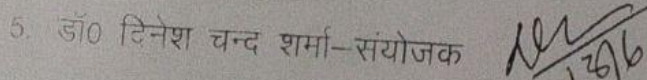 5. डॉ0 दिनेश चन्द शर्मा-संयोजक